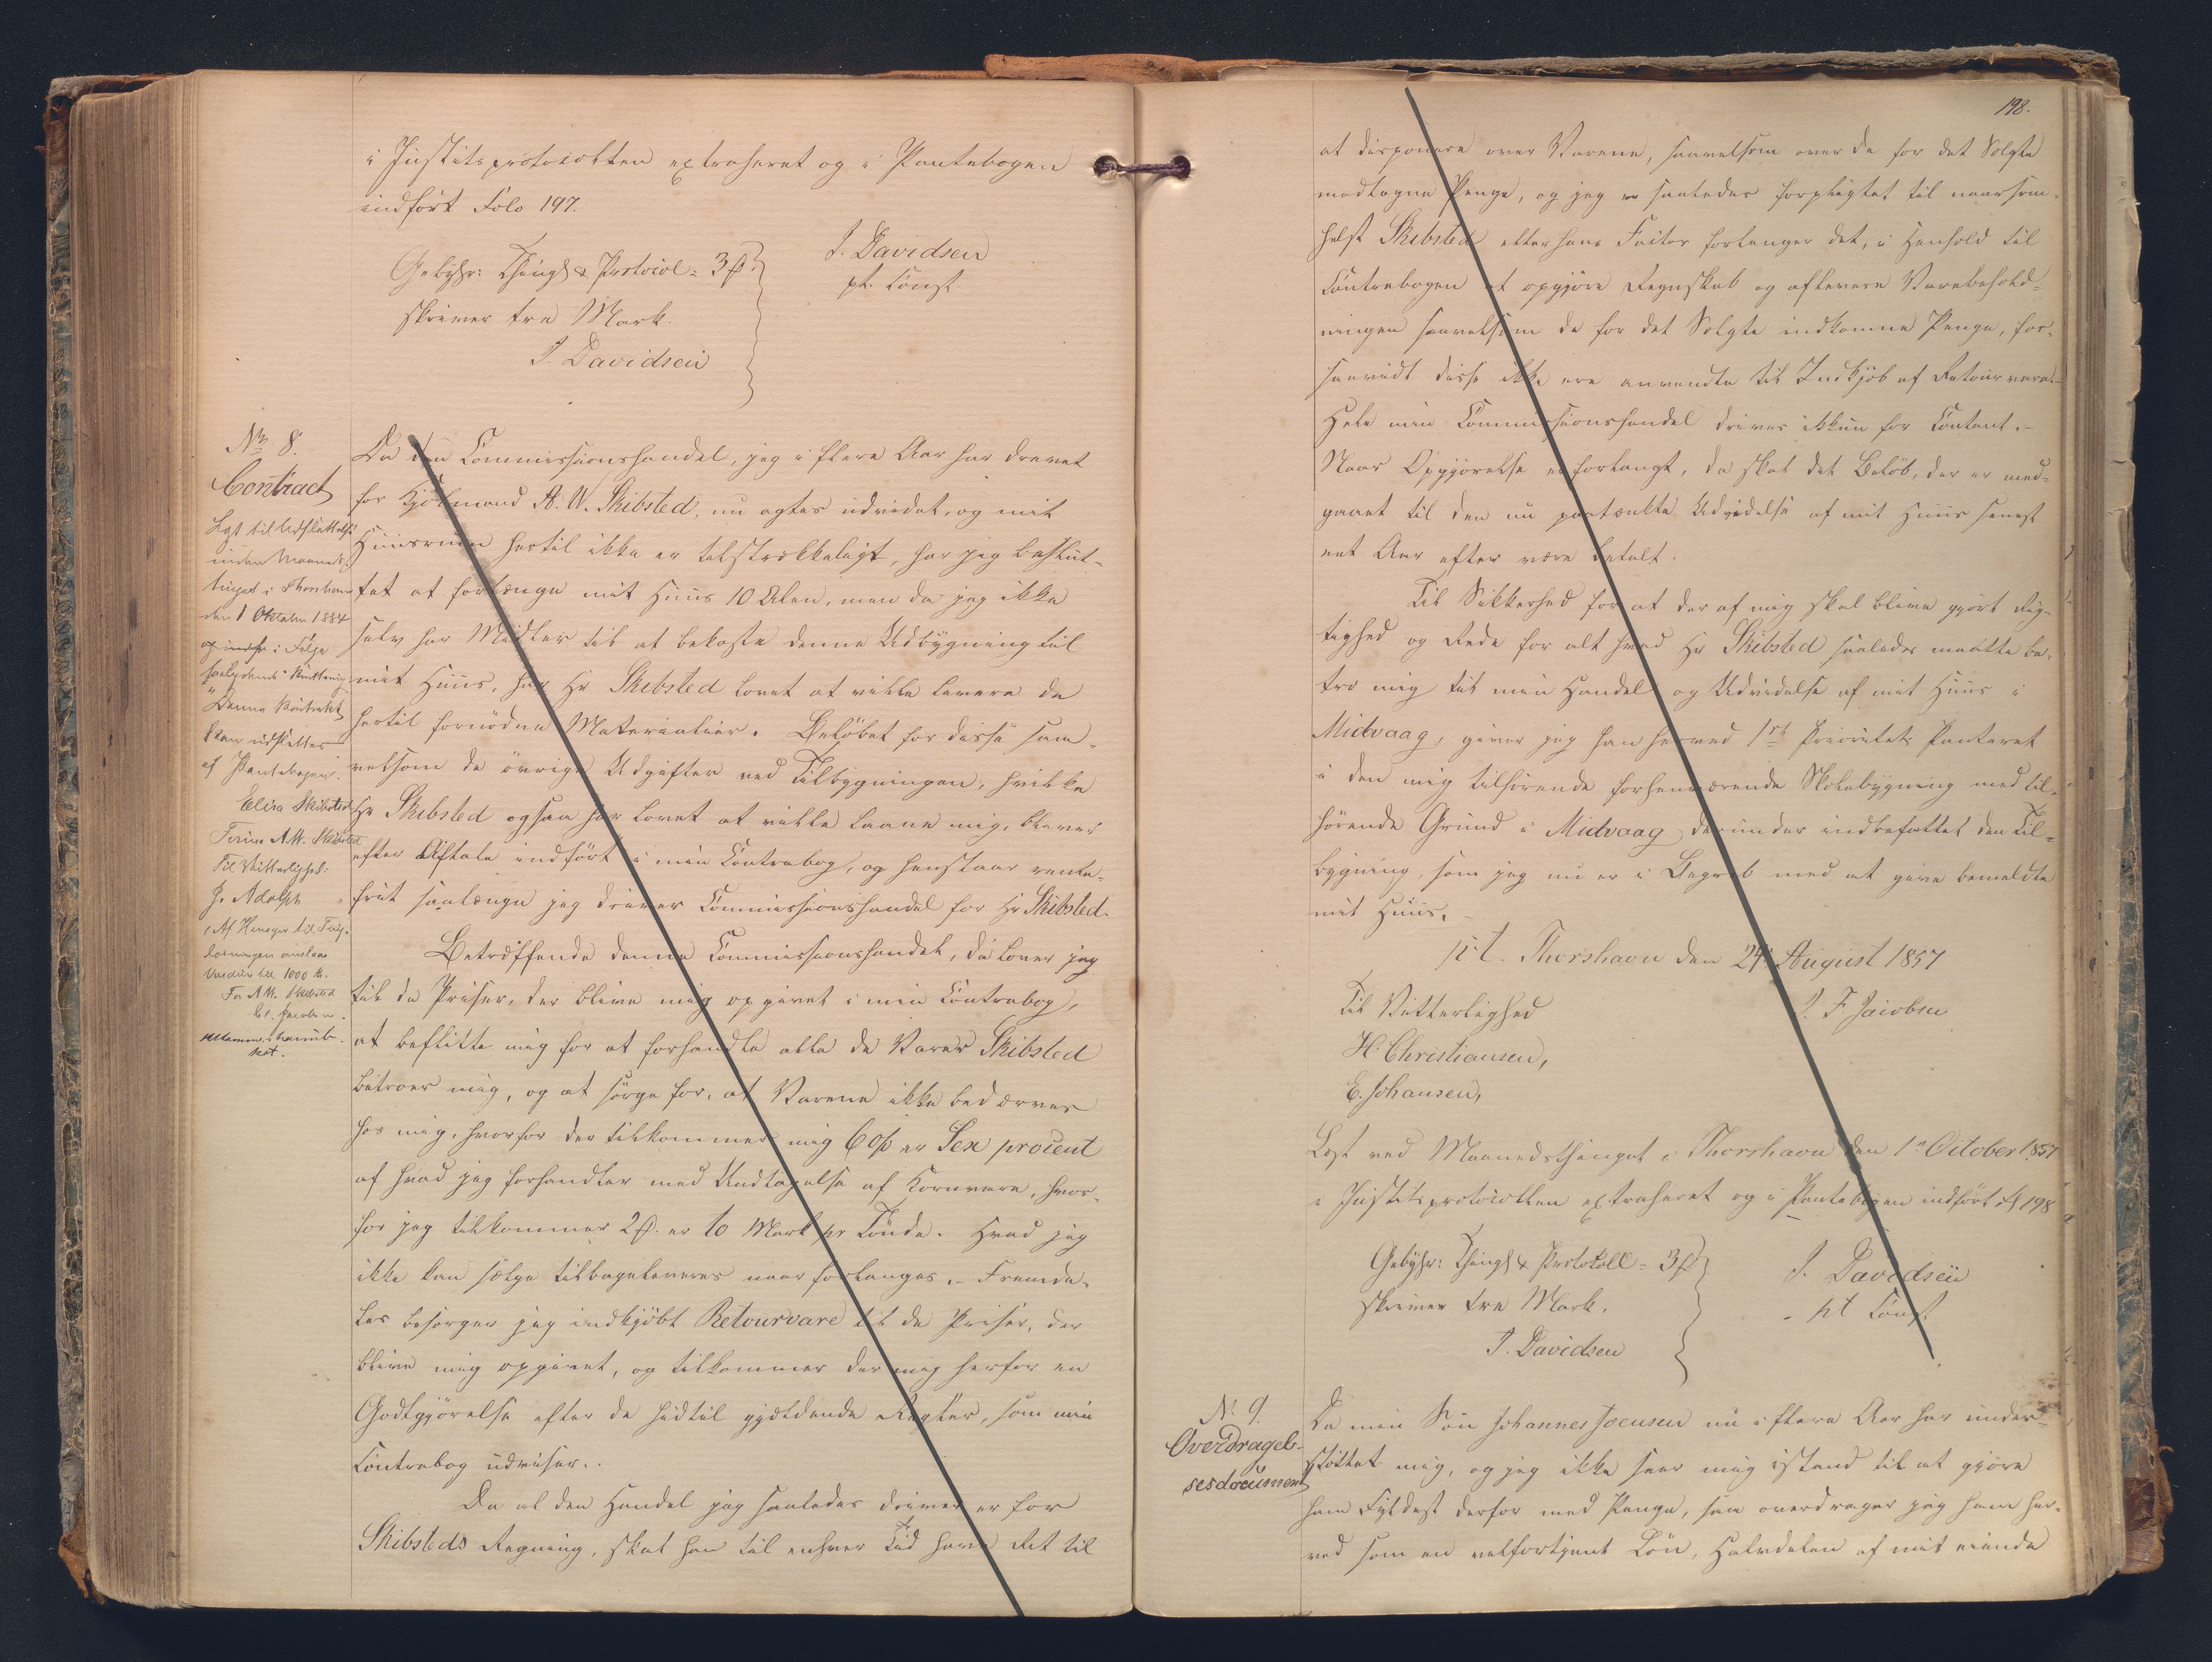 i Justitsprotocollen extraheret og i Pantebogen
indført Folo 197.
Gebyhr: Thingl & Protocol = 3 ß.
skriver tre Mark.
J. Davidsen
J. Davidsen
pt. Const
No 8.
Contract
Lyst til Udslettelse
inden Maaneds-
tinget i Thorshavn
den 1 Oktober 1884
i Følge
saalydende Kvittering
"Denne Kontrakt
kan udslettes
af Pantebogen.
Elisa Skibsted
Firma A.W. Skibsted
Til Vitterlighed:
J. Adolph "
(Af Hensyn til Ting-
læsningen ansloaes
Værdien til 1000 Kr.
For A.W. Skibsted
Jacobsen.
Da den Commissionshandel, jeg i flere Aar har drevet
for Kjøbmand A. W. Skibsted, nu agtes udvidet, og mit
Huusruum hertil ikke er tilstrækkeligt, har jeg beslut-
tet at forlænge mit Huus 10 Alen, men da jeg ikke
selv har Midler til at bekoste denne Udbygning til
mit Huus, har Hr Skibsted lovet at ville levere de
hertil fornødne Materialier. Beløbet for disse sam-
velsom de øvrige Udgifter ved Tilbygningen, hvilke
Hr Skibsted ogsaa har lovet at ville laane mig, bliver
efter Aftale indført i min Contrabog, og henstaar rente-
frit saalænge jeg driver Commissionshandel for Hr Skibsted.
Betræffende denne Commissionshandel, da lover jeg
til de Priser, der blive mig opgivet i min Contrabog,
at beflitte mig for at forhandle alle de Varer Skibsted
betroer mig, og at sørge for, at Varene ikke bedærves
hos mig, hvorfor der tilkommer mig 6 o/o er Sex procent
af hvad jeg forhandler med Undtagelse af Kornvare, hvor-
for jeg tilkommer 2 ß. er to Mark pr Tønde. Hvad jeg
ikke kan sælge tilbageleveres naar forlanges. - Fremde-
les besørger jeg indkjøbt Retourvare til de Priser, der
blive mig opgivet, og tilkommer der mig herfor en
Godtgjørelse efter de hidtil gjældende Regler, som min
Contrabog udviser..
Da al den Handel jeg saaledes driver er for
Skibsteds Regning, skal han til enhver Tid have Ret til
198.
at disponere over Varene, saavelsom over de for det Solgte
modtagne Penge, og jeg er saaledes forpligtet til naarsom-
helst Skibsted eller hans Factor forlanger det, i Henhold til
Contrabogen at opgjøre Regnskab og aflevere Varebehold-
ningen saavelsom de for det Solgte indkomne Penge, for-
saavidt disse ikke ere anvendte til Indkjøb af Retourvarer.
Hele min Commissionshandel drives ikkun for Contant.-
Naar Opgjørelse er forlangt, da skal det Beløb, der er med-
gaaet til den nu paatænkte Udvidelse af mit Huus senest
eet Aar efter være betalt.
Til Sikkerhed for at der af mig skal blive gjort Rig-
tighed og Rede for alt hvad Hr Skibsted saaledes maatte be-
tro mig til min Handel og Udvidelse af mit Huus i
Midvaag, giver jeg han herved 1ste Prioritets Panteret
i den mig tilhørende forhenværende Skolebygning med til-
hørende Grund i Midvaag derunder indbefattet den Til-
bygning, som jeg nu er i Begreb med at give bemeldte
mit Huus. -
p.t. Thorshavn den 24 August 1857
Til Vitterlighed
J. F Jacobsen
H. Christiansen,
E. Johansen,
Læst ved Maanedsthinget i Thorshavn den 1e October 1857
i Justitsprotocollen extraheret og i Pantebogen indført 198
Gebyhr: Thingl & Protokoll = 3 ß
skriver tre Mark.
J. Davidsen
J. Davidsen
pt Const
No 9.
Overdragel-
sesdocument
Da min Søn Johannes Joensen nu i flere Aar har under-
støttet mig, og jeg ikke seer mig istand til at gjøre
ham Fyldest derfor med Penge, saa overdrager jeg ham her-
ved som en velfortjent Løn, Halvdelen af mit eiende